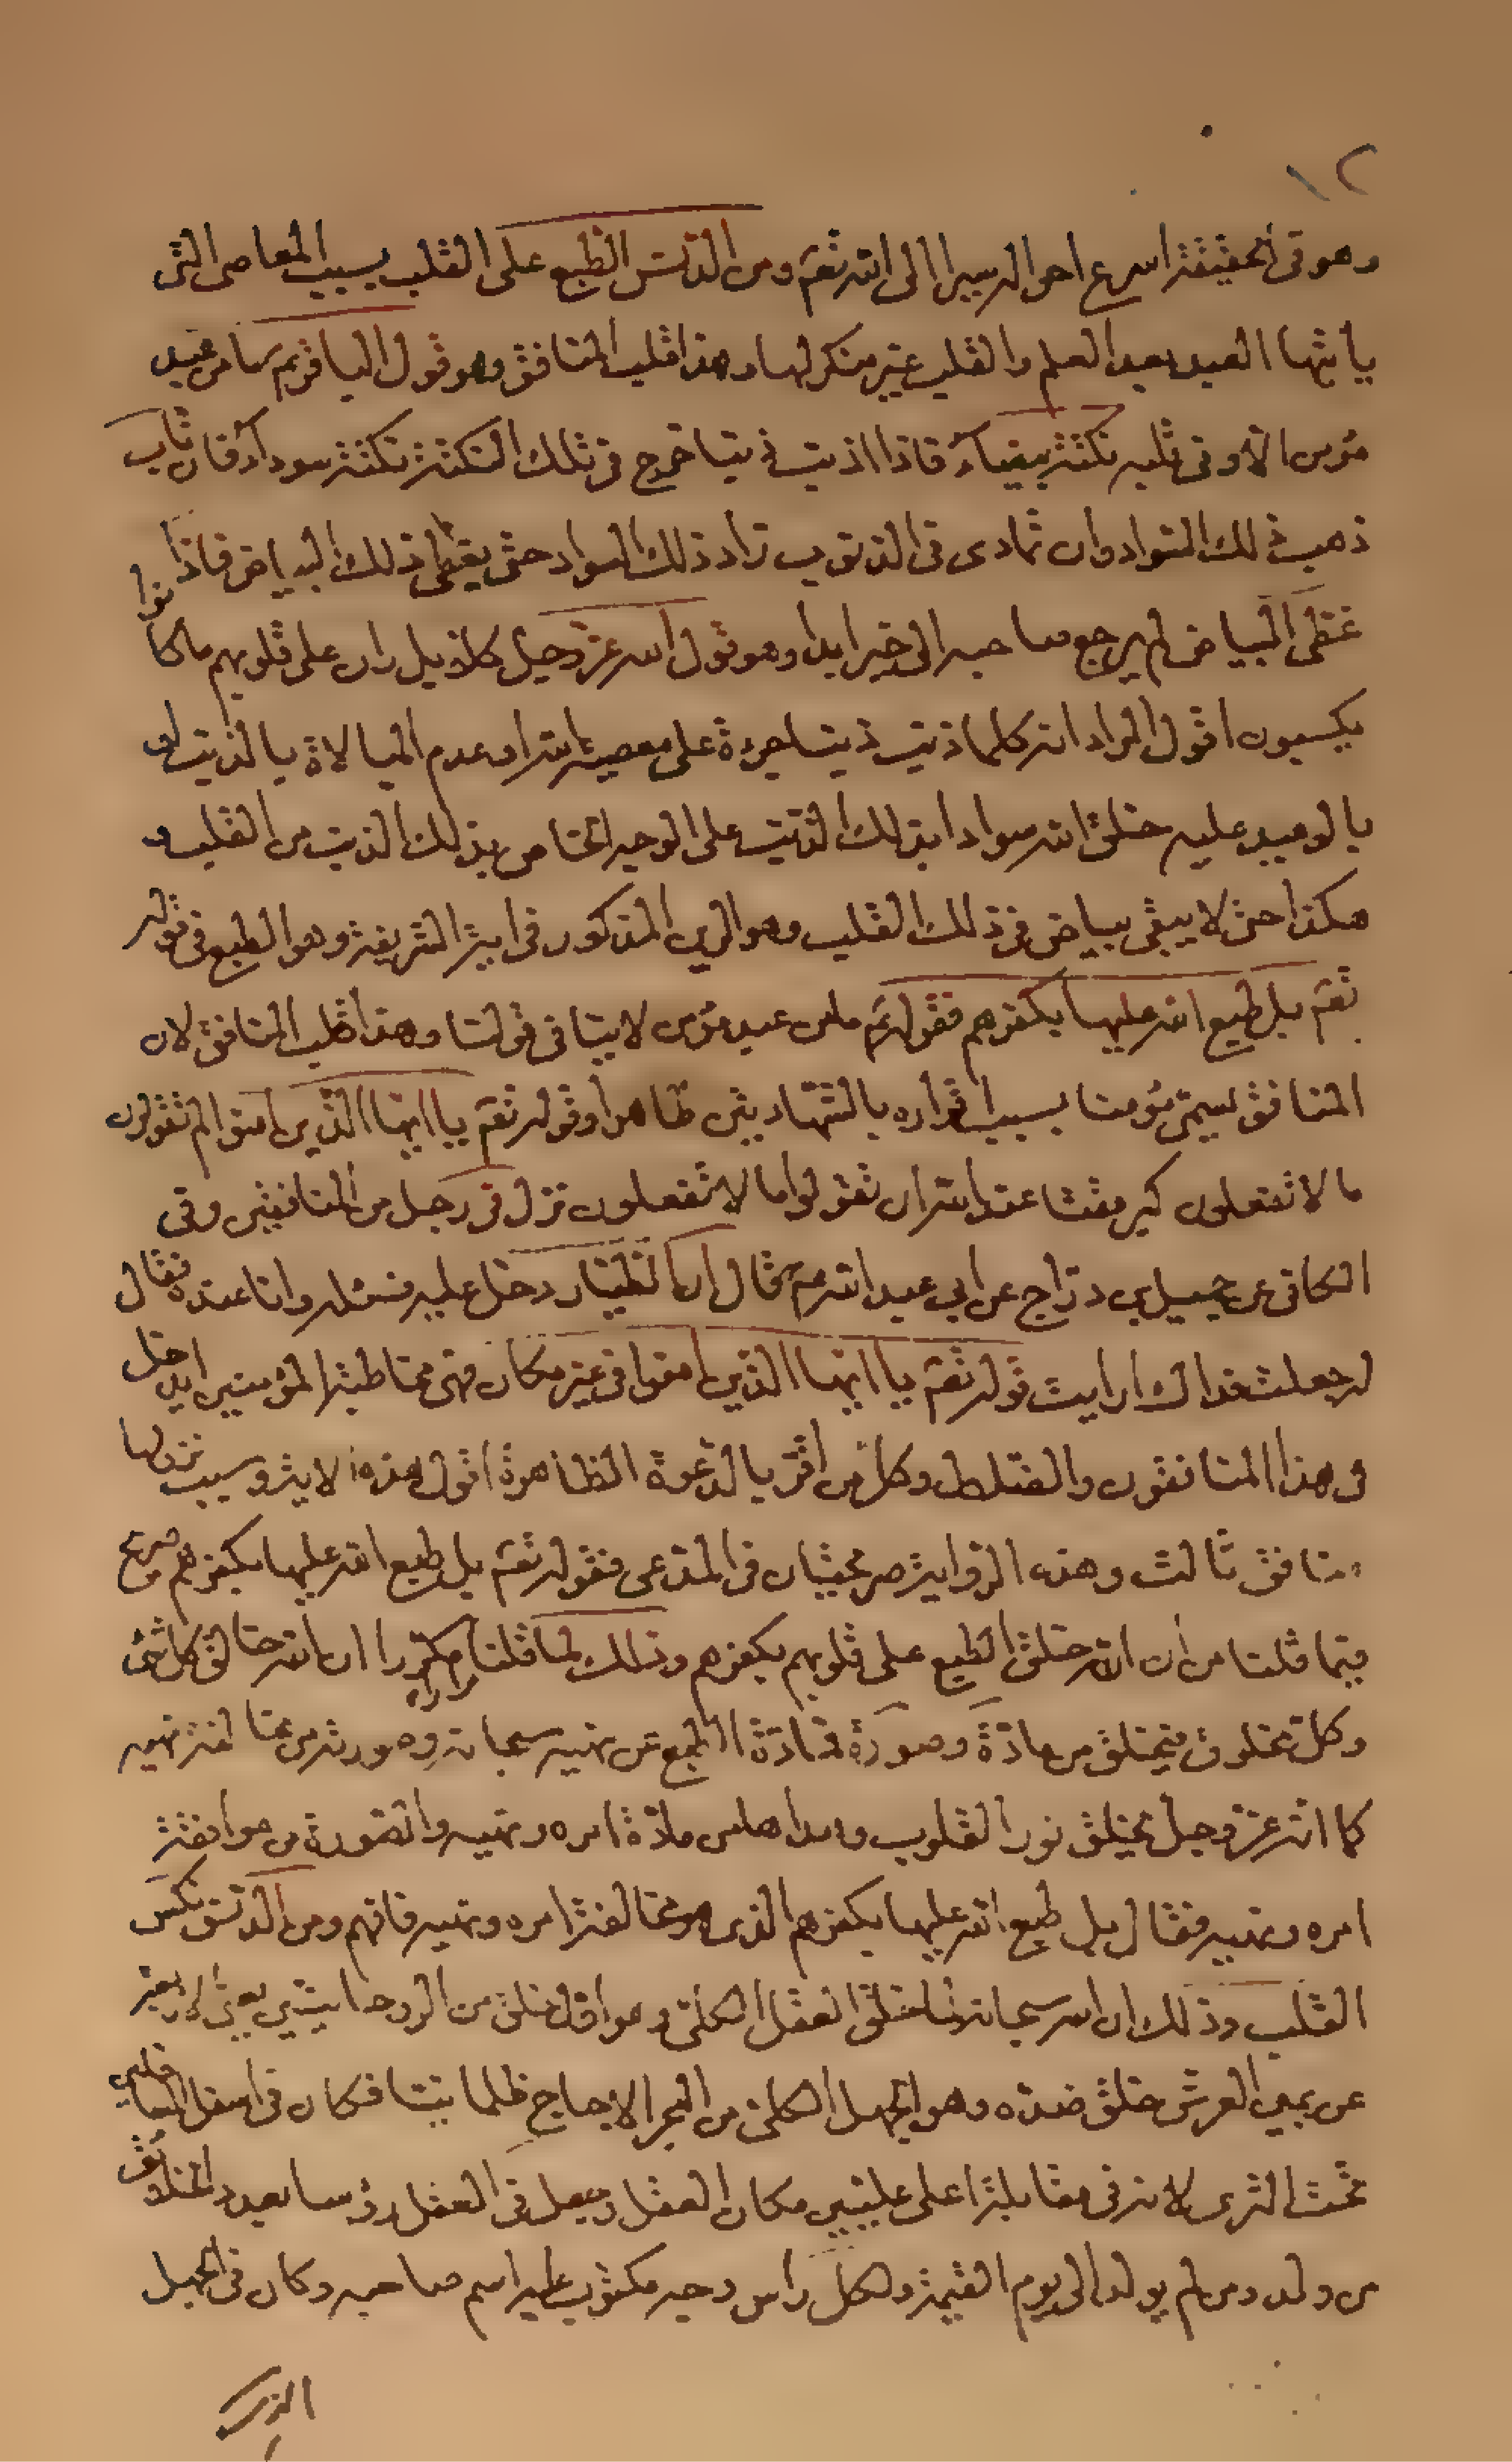 ١٢
وهو فى الحقيقة اسرع احواله سيرا الى الله تعم ومن الدنس الطبع على القلب بسبب المعاصى التى
يأتيها العبد بعد العلم والقلب غير منكر لها وهذا قلب المنافق وهو قول الباقر عم ما من عبد
مؤمن الا وفى قلبه نكتة بيضآء فاذا اذنب ذنبا خرج فى تلك النكتة نكتة سودآء فان تاب
ذهب ذلك السواد وان تمادى فى الذنوب زاد ذلك السواد حتى يغطى ذلك البياض فاذا
غطى البياض لم يرجع صاحبه الى خير ابدا وهو قول الله عز وجل كلا بل ران على قلوبهم ما كانوا
يكسبون اقول المراد انه كلما اذنب ذنبا جرءة على معصية الله او عدم المبالاة بالذنب او
بالوعيد عليه خلق الله سوادا بذلك الذنب على الوجه الخاص بذلك الذنب من القلب و
هكذا حتى لا يبقى بياض فى ذلك القلب وهو الرين المذكور فى الاية الشريفة وهو الطبع فى قوله
تعم بل طبع الله عليها بكفرهم فقوله عم ما من عبد مؤمن لا ينافى قولنا وهذا قلب المنافق لان
المنافق يسمى مؤمنا بسبب اقراره بالشهادتين ظاهرا وقوله تعم يا ايها الذين امنوا لم تقولون
ما لا تفعلون كبر مقتا عند الله ان تقولوا ما لا تفعلون نزل فى رجل من المنافقين وفى
الكافى عن جميل بن دراج عن ابى عبد الله عم قال ان الطيار دخل عليه فسئله وانا عنده فقال
له جعلت فداك ارايت قوله تعم يا ايها الذين امنوا فى غير مكان فهى مخاطبة المؤمنين ايدخل
فى هذا المنافقون والضلال وكل من اقر بالدعوة الظاهرة اقول هذه الاية وسبب نزولها
منافق ثالث وهذه الرواية صريحتان فى المدعى فقوله تعم بل طبع الله عليها بكفرهم صريح
فيما قلنا من ان الله خلق الطبع على قلوبهم بكفرهم وذلك لما قلنا مكررا ان الله خالق كل شئ
وكل مخلوق فيخلق من مادة وصورة فمادة الطبع من نهيه سبحانه وصورته من مخالفة نهيه
كما انه عز وجل يخلق نور القلوب من مادة امره ونهيه والصورة من موافقة
امره ونهيه فقال بل طبع الله عليها بكفرهم الذى هو مخالفة امره ونهيه فافهم ومن الدنس نكس
القلب وذلك ان الله سبحانه لما خلق العقل الكلى وهو اول خلق من الروحانيين
عن يمين العرش خلق ضده وهو الجهل الكلى من البحر الاجاج ظلمانيا فكان فى اسفل السافلين
تحت الثرى لانه فى مقابلة اعلى عليين مكان العقل وجعل فى العقل رؤسا بعدد الخلائق
من ولد ومن لم يولد الى يوم القيمة ولكل راس وجه مكتوب عليه اسم صاحبه وكان فى الجهل